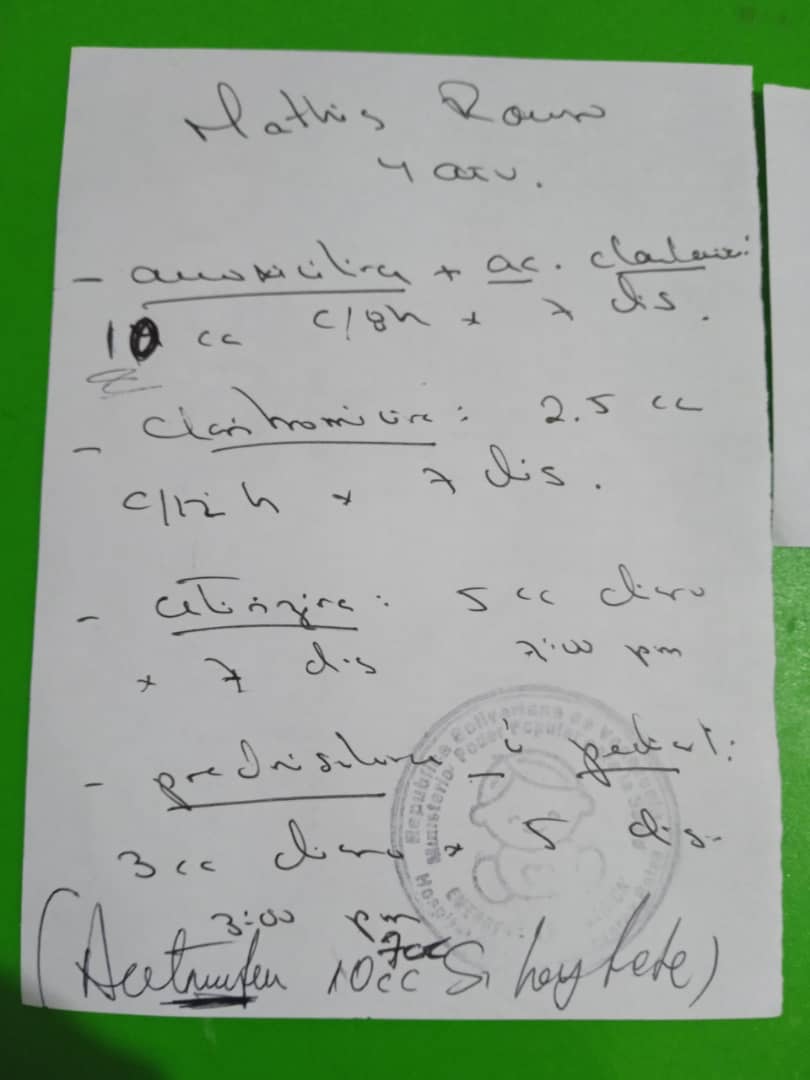 Mathis
4 años.
- amoxicilina + ac. clavulani
10 cc c/8h x 7 dis.
- Claritromicina: 2.5 cc
c/12 h x 7 dis.
- cetirizina: 5 cc diario
x 7 dis 7:00 pm
- prednisolona j pediat:
3 cc diario x 5 dis.
3:00 pm
7cc
(Acetaminofen 10cc Si hay fiebre)
Republica Bolivariana de Venezuela
Ministerio Poder Popular